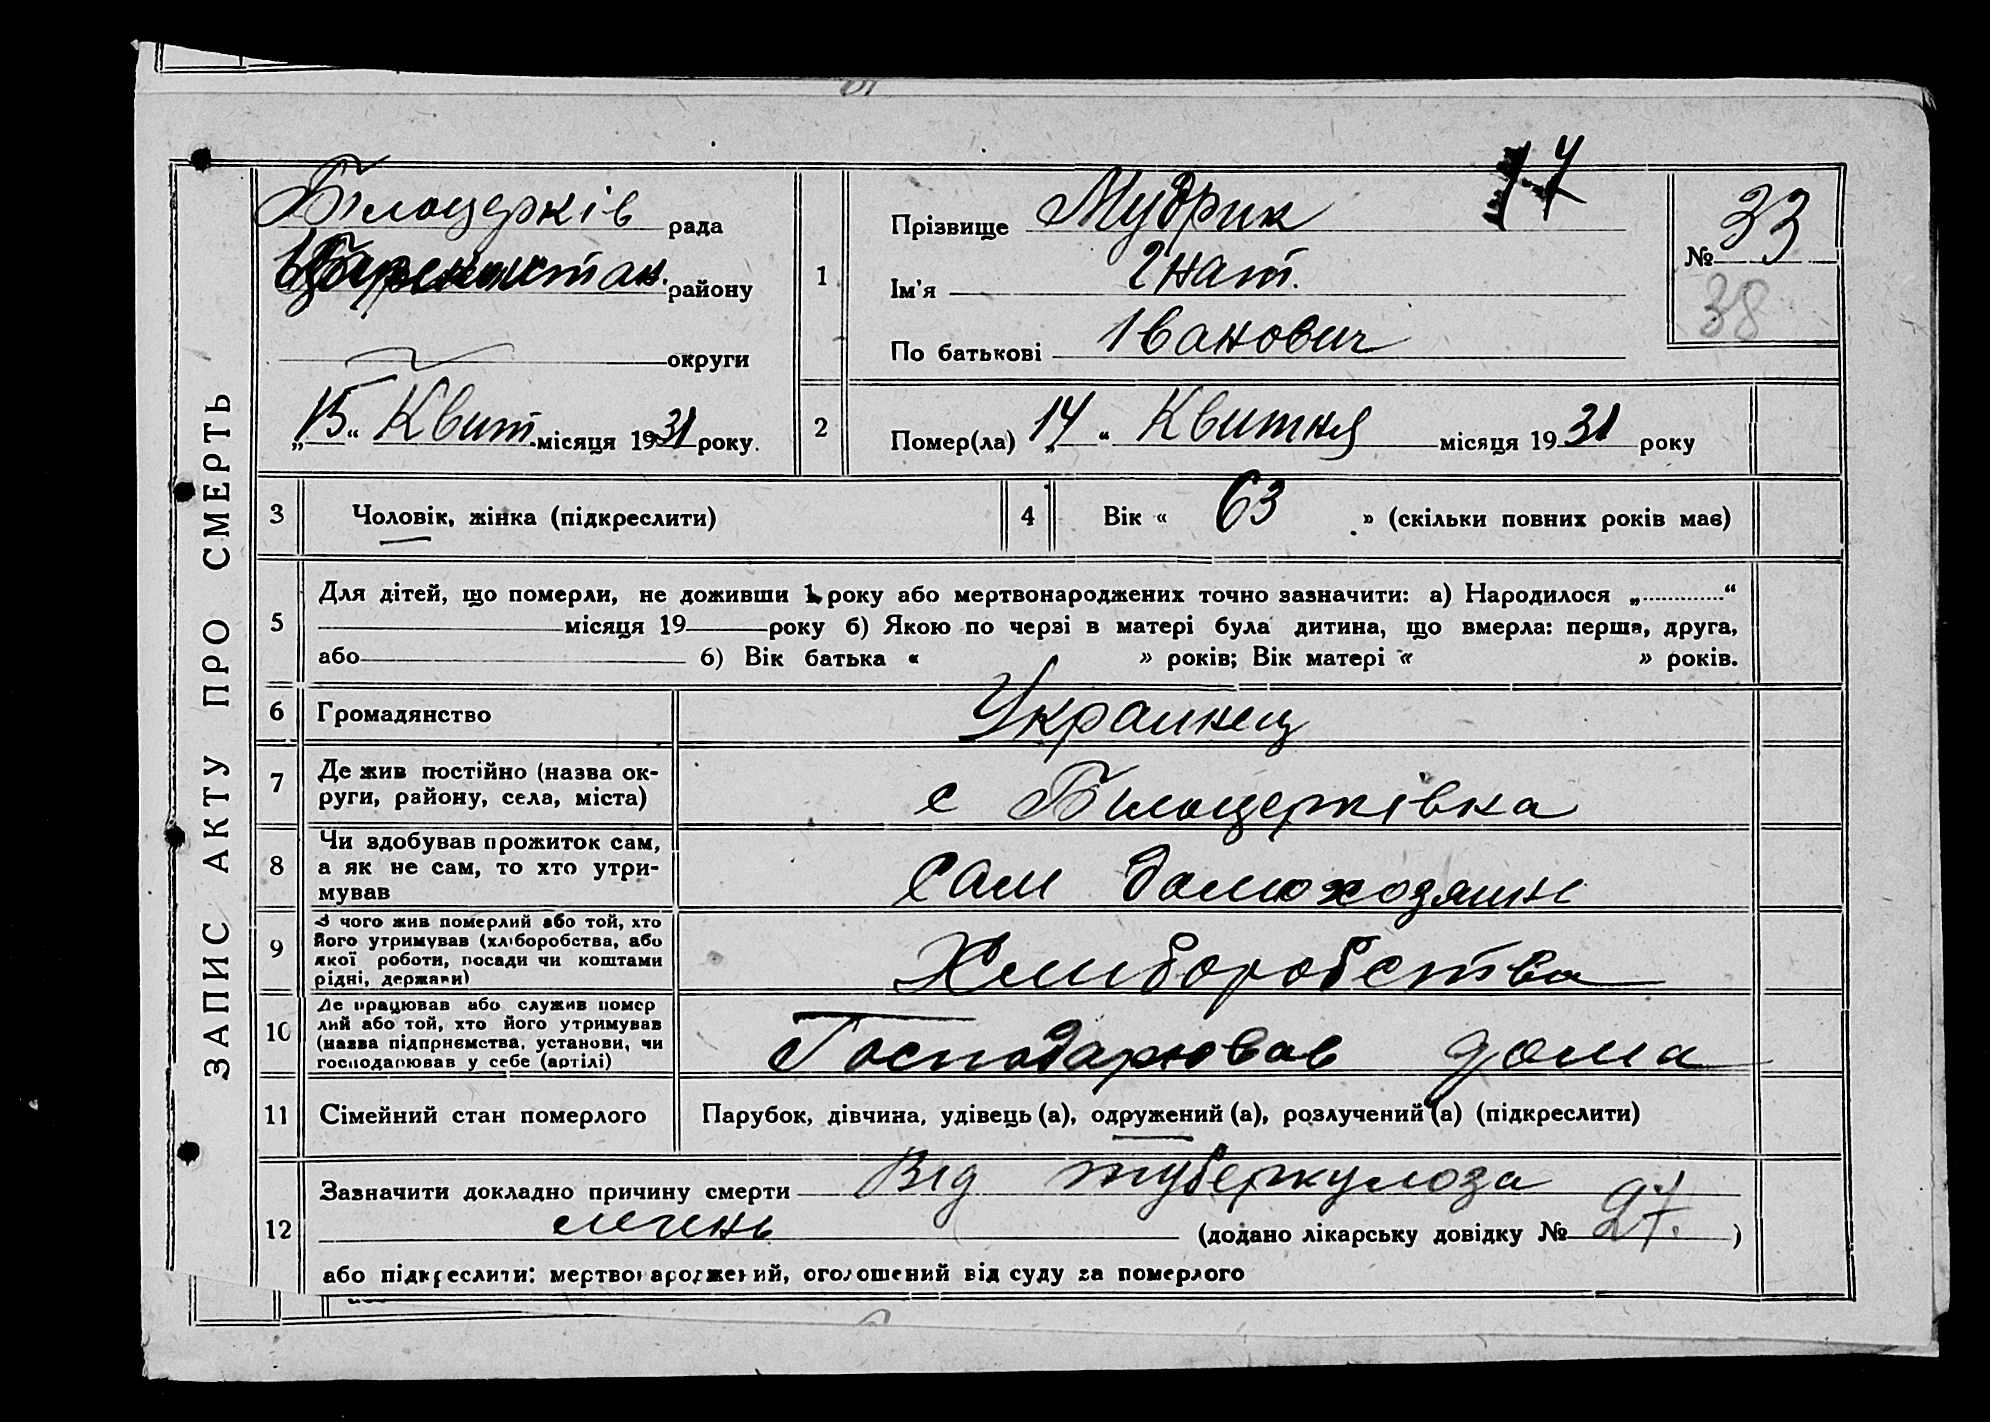 ЗАПИС АКТУ ПРО СМЕРТЬ
Білоцерків рада
району
округи
„15“ Квит. місяця 1931 року.
1
Прізвище Мудрик
Ім'я Гнат.
По батькові Іванович
№ 33
38
2 Помер(ла) „14“ Квитня місяця 1931 року
3 Чоловік, жінка (підкреслити)
4 Вік « 63 » (скільки повних років має)
5 Для дітей, що померли, не доживши 1 року або мертвонароджених точно зазначити: а) Народилося „............“
місяця 19 року б) Якою по черзі в матері була дитина, що вмерла: перша, друга,
або б) Вік батька « » років; Вік матері « » років.
6 Громадянство Украинец
7 Де жив постійно (назва ок-
руги, району, села, міста) с Билоцерківка
8 Чи здобував прожиток сам,
а як не сам, то хто утри-
мував Сам домохозяин
9 З чого жив померлий або той, хто
його утримував (хліборобства, або
якої роботи, посади чи коштами
рідні, держави) Хлиборобства
10 Де працював або служив помер
лий або той, хто його утримував
(назва підприємства, установи, чи
господарював у себе (артілі) Господарював дома
11 Сімейний стан померлого Парубок, дівчина, удівець (а), одружений (а), розлучений (а) (підкреслити)
12 Зазначити докладно причину смерти Від туберкулоза
легень (додано лікарську довідку № 27. )
або підкреслити: мертвонароджений, оголошений від суду за померлого